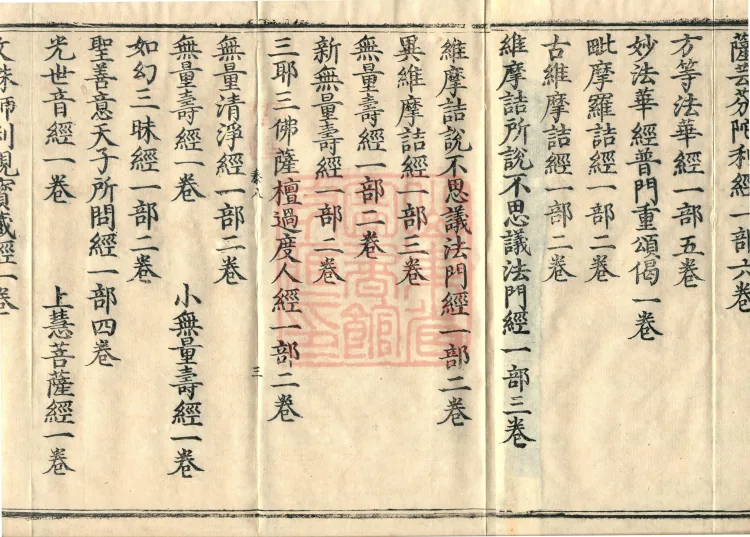 薩芸芬陁利經一部六卷
方等法華經一部五卷
妙法華經普門重頌偈一卷
毗摩羅詰經一部二卷
古維摩詰經一部二卷
維摩詰所說不思議法門經一部三卷
維摩詰說不思議法門經一部二卷
異維摩詰經一部三卷
無量壽經一部二卷
新無量壽經一部二卷
三耶三佛薩檀過度人經一部二卷
卷八 三
無量清淨經一部二卷
無量壽經一卷 小無量壽經一卷
如幻三昧經一部二卷
聖善意天子所問經一部四卷
光世音經一卷 上慧菩薩經一卷
文殊師利現寶藏經一卷